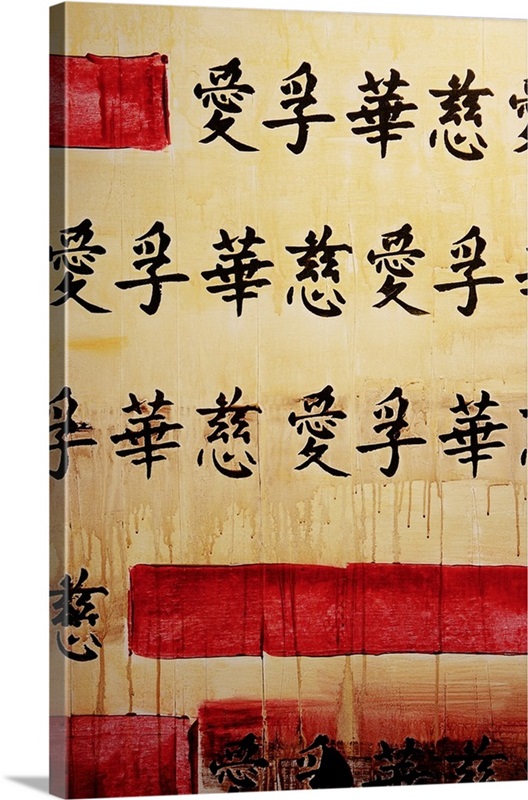 愛孚華慈愛
愛孚華慈愛孚
孚華慈愛孚華
慈
愛孚華慈